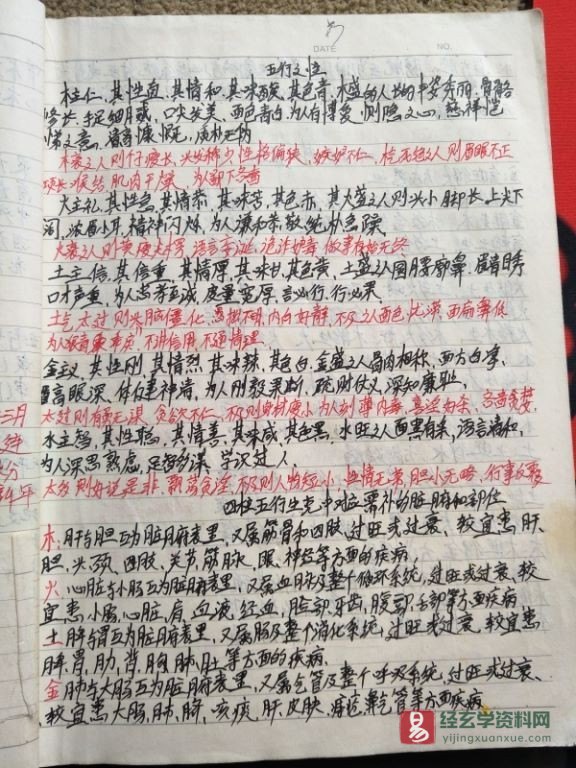 DATE NO.
五行之性
木主仁,其性直,其情和,其味酸,其色青,木盛的人长的丰姿秀丽,骨骼
修长,手足细腻,口尖发美,面色青白,为人有博爱,恻隐之心,慈祥恺
悌之意,清高慷慨,质朴无伪
木衰之人则行瘦长,头发稀少,性格偏狭,嫉妒不仁,木死绝之人则眉眼不正
项长喉结,肌肉干燥,为人鄙下吝啬
火主礼,其性急,其情恭,其味苦,其色赤,其火盛之人则头小脚长,上尖下
阔,浓眉小耳,精神闪烁,为人谦和恭敬,纯朴急躁
火衰之人则黄瘦尖楞,语言妄诞,诡诈妒毒,做事有始无终
土主信,其性重,其情厚,其味甘,其色黄,土盛之人圆腰廓鼻,眉清目秀
口才声重,为人忠孝至诚,度量宽厚,言必行,行必果
土气太过则头脑僵化,愚拙不明,内向好静,不及之人面色忧滞,面扁鼻低
为人狠毒乖戾,不讲信用,不通情理
金主义,其性刚,其情烈,其味辣,其色白,金盛之人骨肉相称,面方白净,
眉高眼深,体健神清,为人刚毅果断,疏财仗义,深知廉耻
太过则有勇无谋,贪欲不仁,不及则身材瘦小,为人刻薄内毒,喜淫好杀,吝啬贪婪
水主智,其性聪,其情善,其味咸,其色黑,水旺之人面黑有采,语言清和,
为人深思熟虑,足智多谋,学识过人
太多则好说是非,飘荡贪淫,不及则人物短小,性情无常,胆小无略,行事反覆
四柱五行生克中对应需补的脏腑和部位
木:肝与胆互为脏腑表里,又属筋骨和四肢,过旺或过衰,较宜患肝、
胆、头、颈、四肢、关节、筋脉、眼、神经等方面的疾病
火:心脏与小肠互为脏腑表里,又属血脉及整个循环系统,过旺或过衰,较
宜患小肠、心脏、肩、血液、经血、脸部、牙齿、腹部、舌部等方面疾病
土:脾与胃互为脏腑表里,又属肠及整个消化系统,过旺或过衰,较宜患
脾、胃、肋、背、胸、肺、肚等方面的疾病
金:肺与大肠互为脏腑表里,又属气管及整个呼吸系统,过旺或过衰、
较宜患大肠、肺、脐、咳痰、肝、皮肤、痔疮、鼻气管等方面疾病
三月
年
经玄学资料网
yijingxuanxue.com